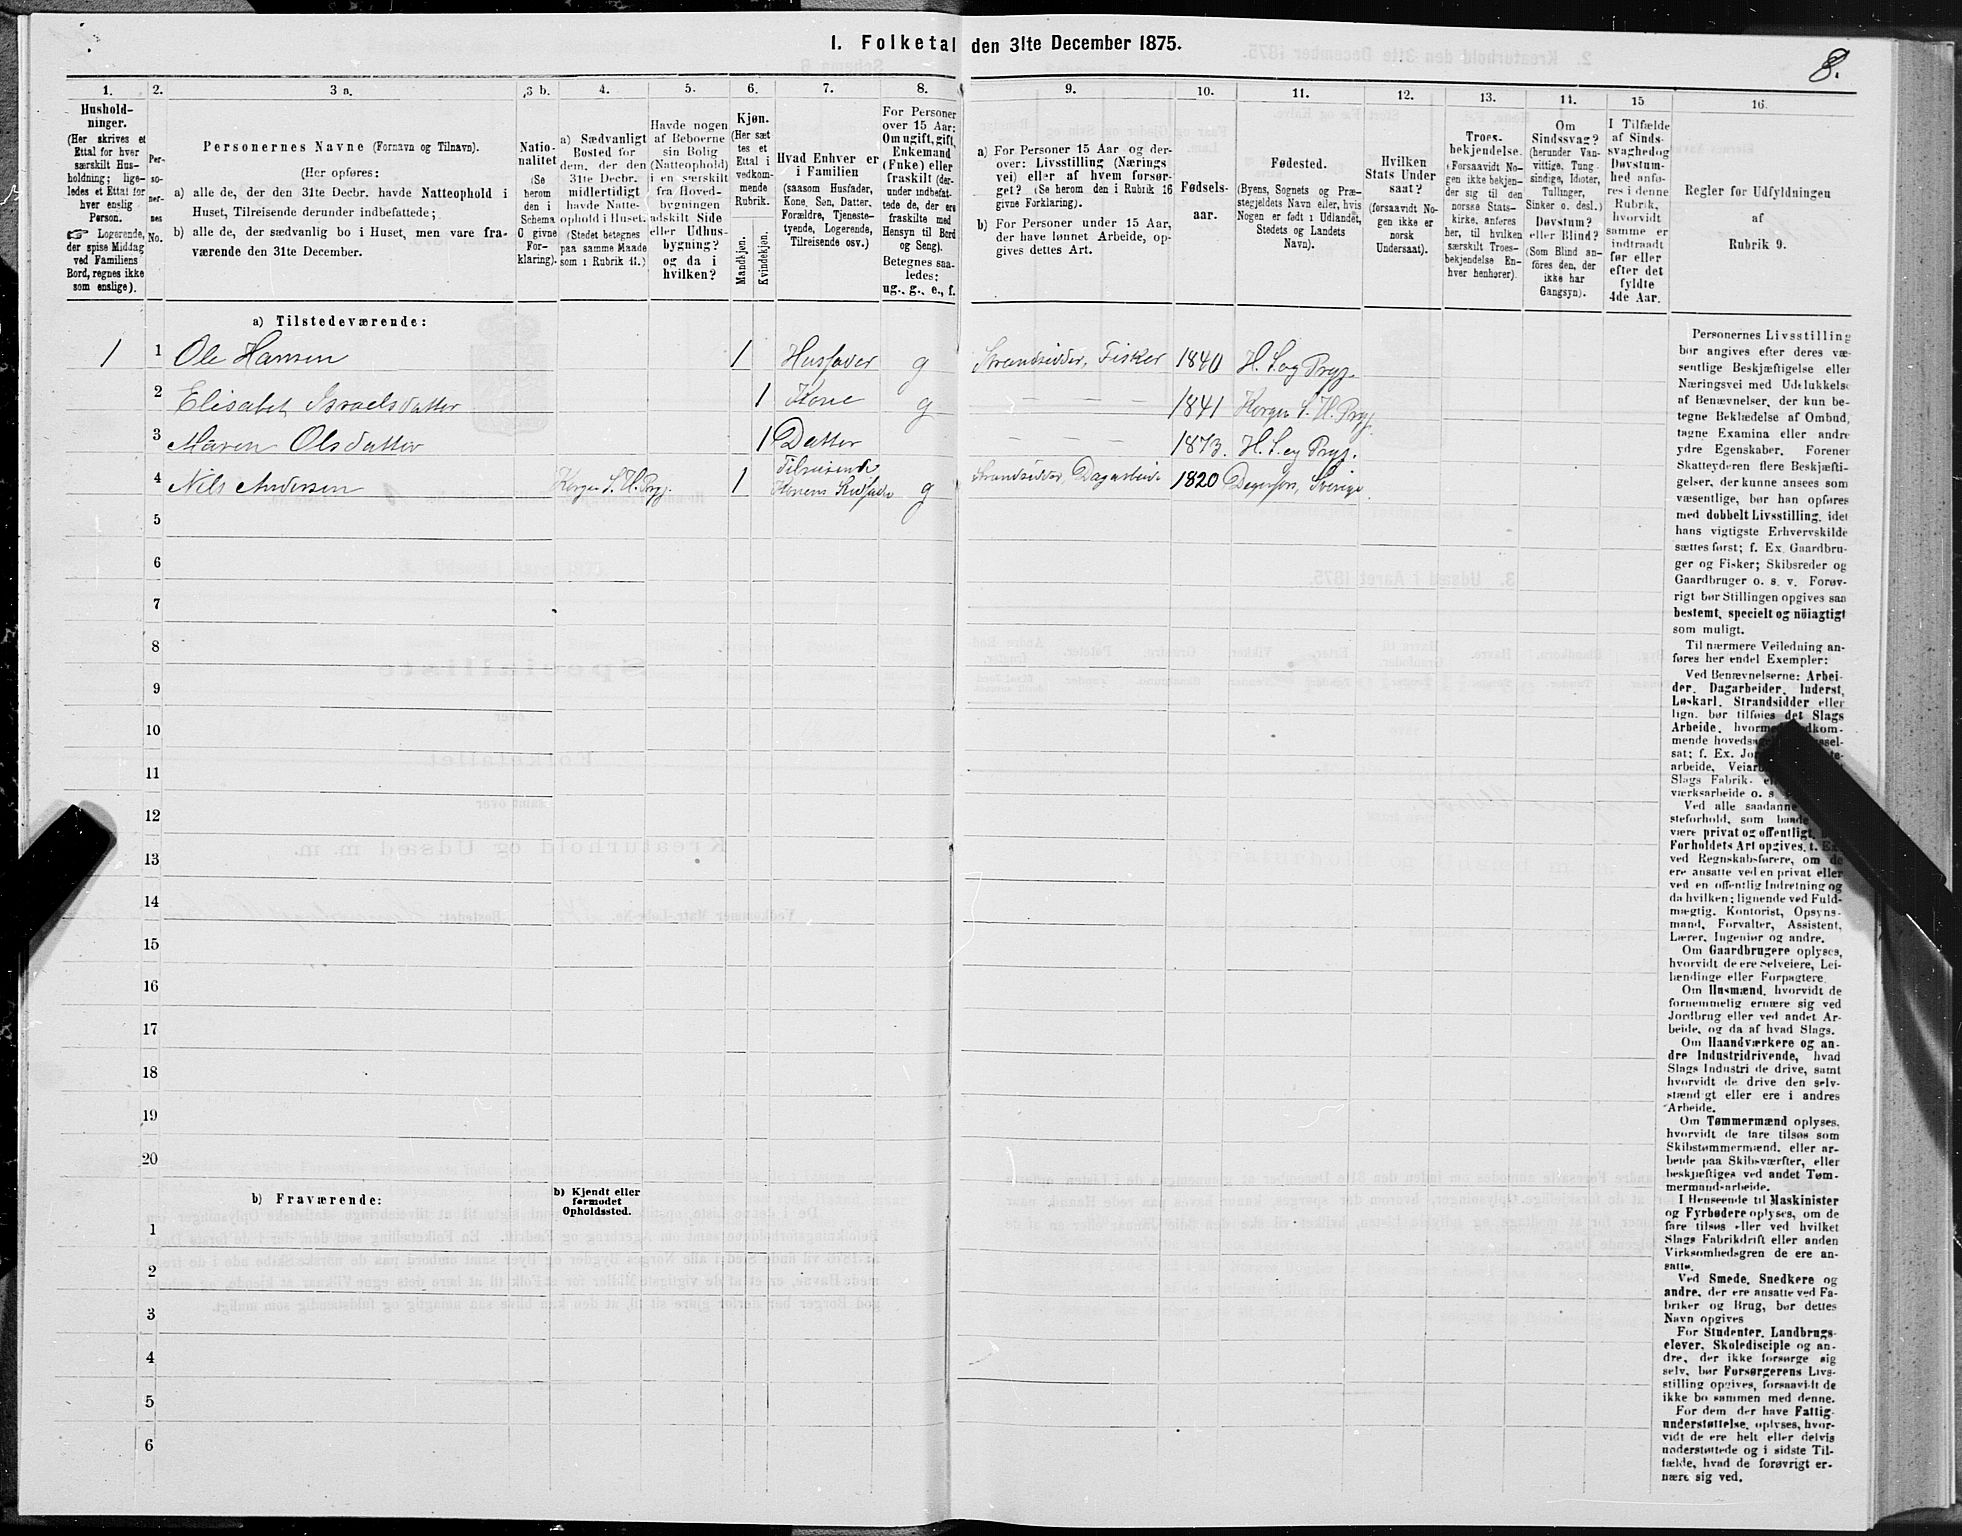 I. Folketal den 31te December 1875.
8.
1. 2. 3 a. 3 b. 4. 5. 6. 7. 8.
9. 10. 11. 12. 13. 14. 15 16.
Hushold-
ninger.
(Her skrives et
Ettal for hver
særskilt Hus-
holdning; lige-
ledes et Ettal for
hver enslig
Person.
☞ Logerende,
der spise Middag
ved Familiens
Bord, regnes ikke
som enslige).
Per-
so-
ner-
nes
No.
Personernes Navne (Fornavn og Tilnavn).
(Her opføres:
a) alle de, der den 31te Decbr. havde Natteophold i
Huset, Tilreisende derunder indbefattede;
b) alle de, der sædvanlig bo i Huset, men vare fra-
værende den 31te December.
Natio-
nalitet
(Se
herom
den i
Schema
G givne
For-
klaring).
a) Sædvanligt
Bosted for
dem, der den
31te Decbr.
midlertidigt
havde Natte-
ophold i Huset.
(Stedet betegnes
paa samme Maade
som i Rubrik 11.)
Havde nogen
af Beboerne
sin Bolig
(Natteophold)
i en særskilt
fra Hoved-
bygningen
adskilt Side
eller Udhus-
bygning?
og da i
hvilken?
Kjøn.
(Her sæt-
tes et
Ettal i
vedkom-
mende
Rubrik.
Mandkjøn.
Kvindekjøn.
Hvad Enhver er
i Familien
(saasom Husfader,
Kone, Søn, Datter,
Forældre, Tjeneste-
tyende, Logerende,
Tilreisende osv.)
For Personer
over 15 Aar:
Om ugift, gift,
Enkemand
(Enke) eller
fraskilt (der-
under indbefat-
tede de, der ere
fraskilte med
Hensyn til Bord
og Seng).
Betegnes saa-
ledes:
ug., g., e., f.
a) For Personer 15 Aar og der-
over: Livsstilling (Nærings-
vei) eller af hvem forsør-
get? (Se herom den i Rubrik 16
givne Forklaring).
b) For Personer under 15 Aar,
der have lønnet Arbeide, op-
gives dettes Art.
Fødsels-
aar.
Fødested.
(Byens, Sognets og Præ-
stegjeldets Navn eller, hvis
Nogen er født i Udlandet,
Stedets og Landets
Navn).
Hvilken
Stats Under
saat?
(forsaavidt No-
gen ikke er
norsk
Undersaat).
Troes-
bekjendelse.
(Forsaavidt No-
gen ikke bekjen-
der sig til den
norske Stats-
kirke, anføres
her, til hvilken
særskilt Troes-
bekjendelse En-
hver henhører).
Om
Sindssvag?
(herunder Van-
vittige, Tung-
sindige, Idioter,
Tullinger,
Sinker o. desl.)
Døvstum?
eller Blind?
(Som Blind an-
føres den, der
ikke har
Gangsyn).
I Tilfælde
af Sinds-
svaghed og
Døvstum-
hed anfø-
res i denne
Rubrik,
hvorvidt
samme er
indtraadt
før eller
efter det
fyldte
4de Aar.
Regler før Udfyldningen
af
Rubrik 9.
a) Tilstedeværende:
1 1 Ole Hansen 1 Husfader g Strandsidder, Fisker 1840 H. S. og Prgj.
2 Elisabet Israelsdatter 1 Kone g — — — 1841 Korgen S. H. Prgj.
3 Maren Olsdatter 1 Datter — — — 1873. H. S. og Prgj.
4 Nils Andersen Korgen S. H. Prgj. 1 Tilreisende g Strandsidder, 1820 Sverige
5
6
7
8
9
10
11
12
13
14
15
16
17
18
19
20
b) Fraværende:
b) Kjendt eller
formodet
Opholdssted.
1
2
3
4
5
6
Personernes Livsstilling
bør angives efter deres væ-
sentlige Beskjæftigelse eller
Næringsvei med Udelukkelse
af Benævnelser, der kun be-
tegne Beklædelse af Ombud,
tagne Examina eller andre
ydre Egenskaber. Forener
Skatteyderen flere Beskjæfti-
gelser, der kunne ansees som
væsentlige, bør han opføres
med dobbelt Livsstilling, idet
hans vigtigste Erhvervskilde
sættes først; f. Ex. Gaardbru-
ger og Fisker; Skibsreder og
Gaardbruger o. s. v. Forøv-
rigt bør Stillingen opgives saa
bestemt, specielt og nöiagtigt
som muligt.
Til nærmere Veiledning an-
føres her endel Exempler:
Ved Benævnelserne: Arbei-
der, Dagarbeider, Inderst,
Løskarl, Strandsidder eller
lign. bør tilføies det Slags
Arbeide, hvormed
mende
sat; f. Ex.
arbeide,
Slags Fabrik-
værksarbeide o. s.
Ved alle saadanne
steforhold, som
være privat og offentligt,
Forholdets Art opgives, f. Ex.
ved Regnskabsførere, om de
ere ansatte ved en privat eller
ved en offentlig Indretning og
da hvilken; lignende ved Fuld-
mægtig, Kontorist, Opsyns-
mand, Forvalter, Assistent,
Lærer, Ingeniør og andre.
Om Gaardbrugere oplyses,
hvorvidt de ere Selveiere, Lei-
lændinge eller Forpagtere.
Om Husmænd, hvorvidt de
fornemmelig ernære sig ved
Jordbrug eller ved andet Ar-
beide, og da af hvad Slags.
Om Haandværkere og an-
dre Industridrivende, hvad
Slags Industri de drive, samt
hvorvidt de drive den selv-
stændigt eller ere i andres
Arbeide.
Om Tømmermænd oplyses,
hvorvidt de fare tilsøs som
Skibstømmermænd, eller ar-
beide paa Skibsværfter, eller
beskjæftiges ved andet Tøm-
mermandsarbeide.
I Henseende til Maskinister
og Fyrbødere oplyses, om de
fare tilsøs eller ved hvilket
Slags Fabrikdrift eller anden
Virksomhedsgren de ere an-
satte.
Ved Smede, Snedkere og
andre, der ere ansatte ved Fa-
briker og Brug, bør dettes
Navn opgives
For Studenter, Landbrugs-
elever, Skoledisciple og an-
dre, der ikke forsørge sig
selv, bør Forsørgerens Livs-
stilling opgives, forsaavidt de
ikke bo sammen med denne.
For dem der have Fattig-
understøttelse, oplyses, hvor-
vidt de ere helt eller delvis
understøttede og i sidste Til-
fælde, hvad de forøvrigt er-
nære sig ved.